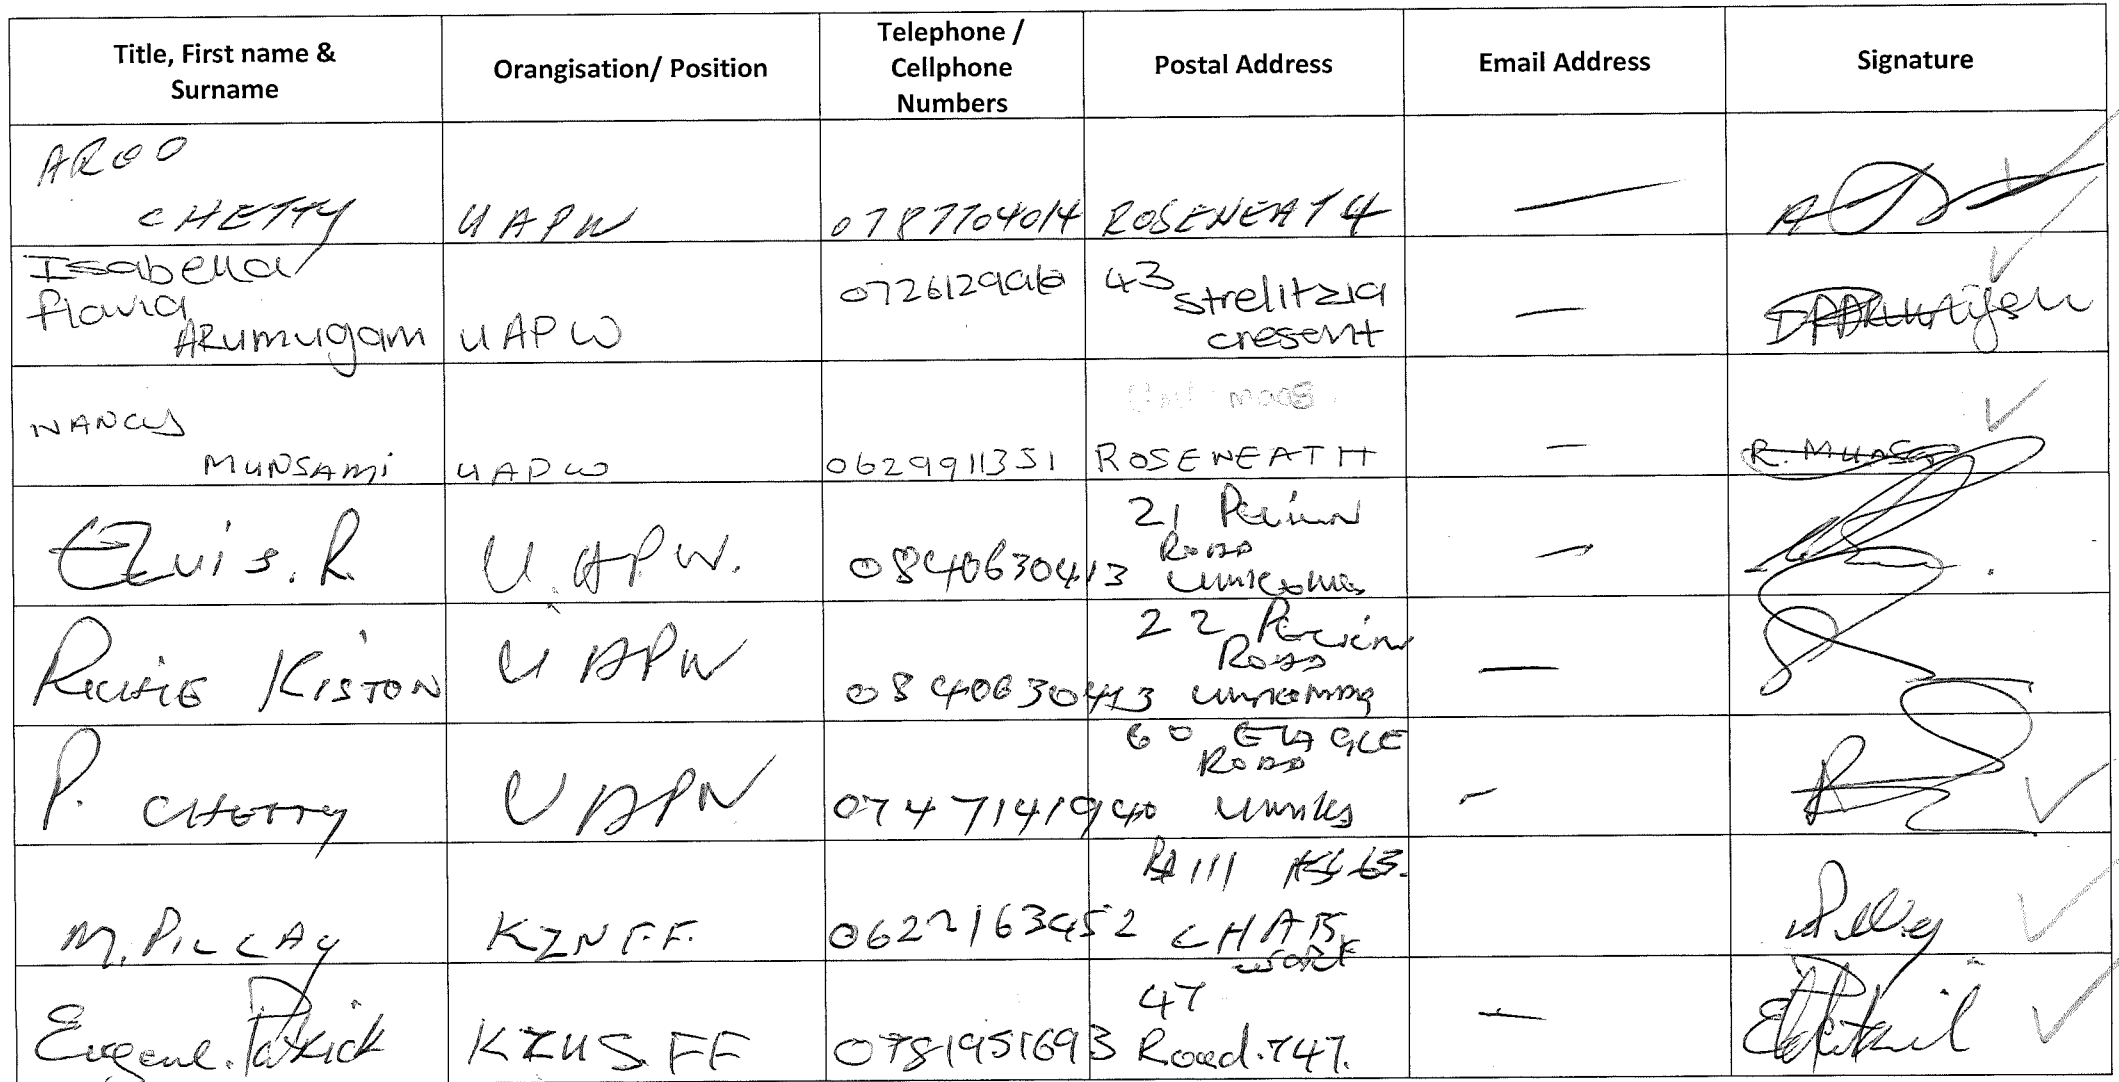 Title, First name & Surname
Orangisation/ Position
Telephone / Cellphone Numbers
Postal Address
Email Address
Signature
AROO CHETTY
UAPW
0787704014
ROSENEAT4
—
Isabella flavia ARumugam
UAPW
43 strelitzia cresent
—
NANCY MUNSAMi
UAPW
0629911351
ROSENEATH
—
R. Munsa
Elvis. R.
U.APW.
0840630413
21 Road
—
KISTON
UAPW
0840630413
22 Road
—
P. CHETTY
UAPW
0747141940
60 EAGLE Road Umks
-
M. PILLAY
KZNF.F.
0622163452
111 CHATS WORTH
Eugene. Patrick
KZNS. FF
0781951693
47 Road.747.
—